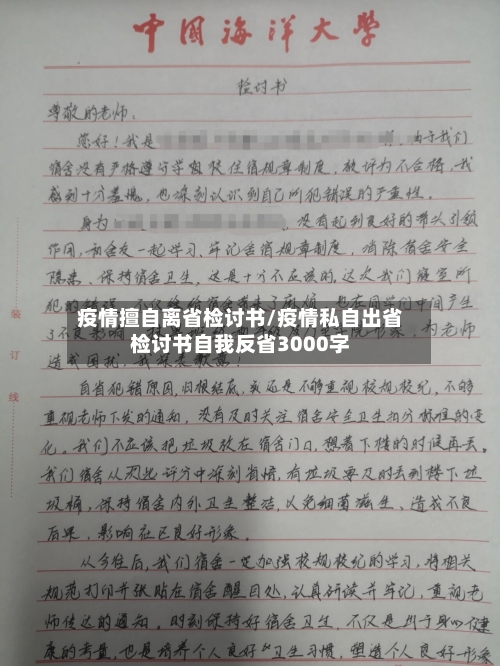 中国海洋大学
检讨书
尊敬的老师:
您好!我是 由于我们
宿舍没有严格遵守学校住宿规章制度,被评为不合格,我
感到十分羞愧,也深刻认识到自己所犯错误的严重性。
身为 没有起到良好的带头引领
作用,和舍友一起学习、牢记舍规章制度,消除宿舍安全
隐患、保持宿舍卫生,这是十分不应该的,这次我们寝室所
疫情擅自离省检讨书/疫情私自出省
检讨书自我反省3000字
自省犯错原因,归根结底,实还是不够重视校规校纪,不够
重视老师下发的通知,没有及时关注宿舍安全卫生扣分标准的变
化。我们不应该把垃圾放在宿舍门口,想着下楼的时候再丢。
我们宿舍从此评分中深刻有悟,有垃圾要及时丢到楼下垃
圾桶,保持宿舍内外卫生整洁,以免细菌滋生、造成不良
后果、影响社区良好形象。
从今往后,我们宿舍一定加强校规校纪的学习,将相关
规范打印并张贴在宿舍醒目处,认真研读并牢记,重视老
师传达的通知。时刻保持好宿舍卫生,不仅是出于身心健
康的考量,也是培养个人良好"卫生习惯,塑造个人良好形象
装
订
线